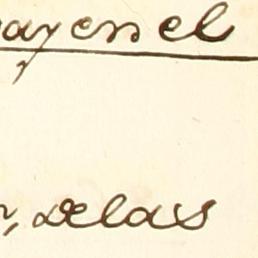 ayen el
, de las